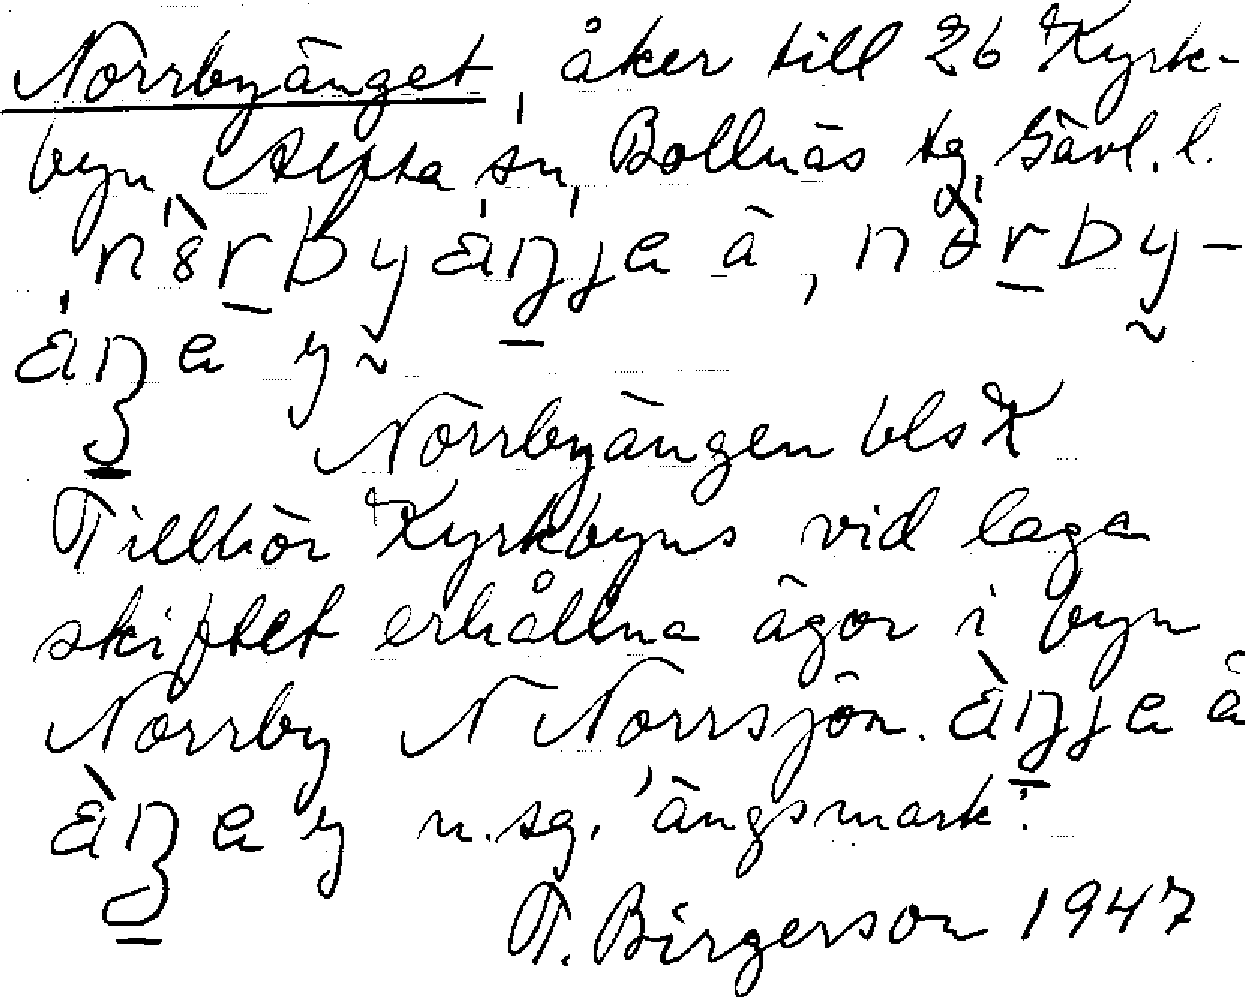 Norrbyänget, åker till 26 Kyrk-
byn, Alfta sn, Bollnäs tg, Gävl. l.
ä, 
y
Norrbyängen bls X
Tillhör Kyrkbyns vid laga
skiftet erhållna ägor i byn
Norrby N Norrsjön. ä
y n.sg. 'ängsmark'.
T. Birgerson 1947